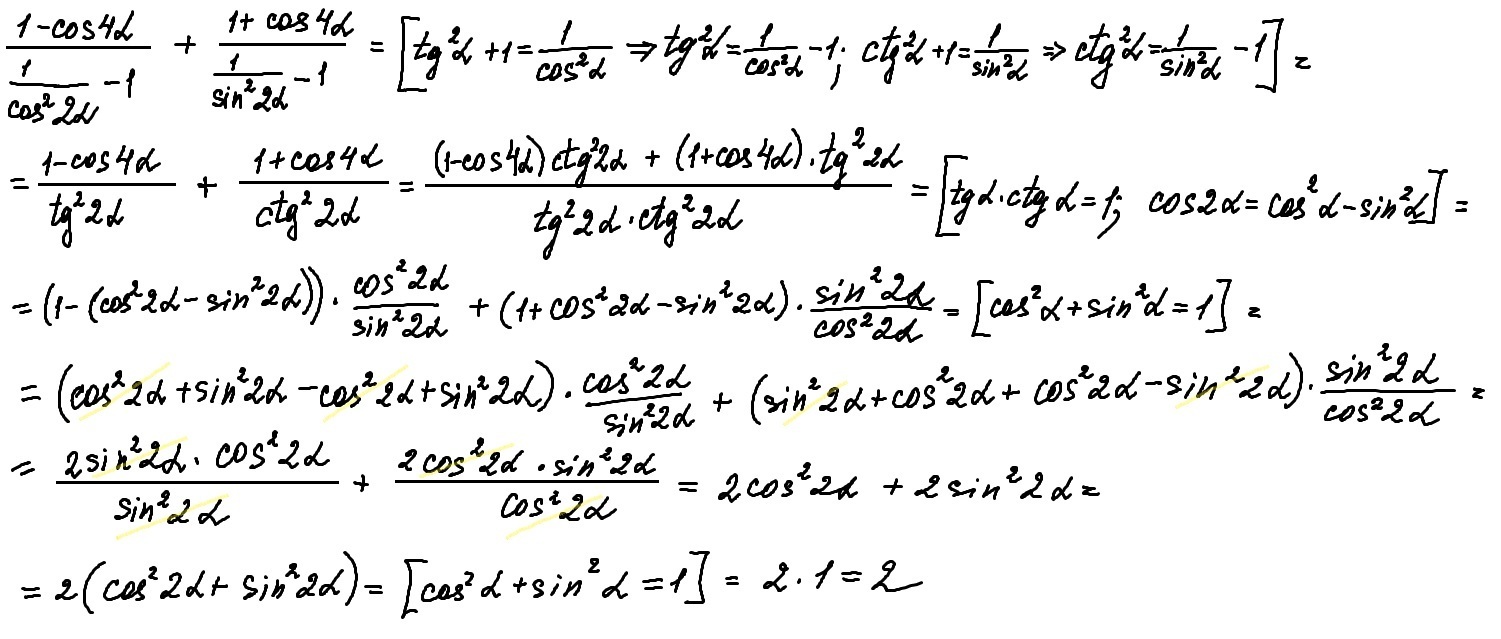 $\frac{1-\cos 4\alpha}{\frac{1}{\cos^2 2\alpha}-1} + \frac{1+\cos 4\alpha}{\frac{1}{\sin^2 2\alpha}-1} = \left[tg^2\alpha+1=\frac{1}{\cos^2\alpha} \Rightarrow tg^2\alpha=\frac{1}{\cos^2\alpha}-1; \; ctg^2\alpha+1=\frac{1}{\sin^2\alpha} \Rightarrow ctg^2\alpha=\frac{1}{\sin^2\alpha}-1\right] =$
$= \frac{1-\cos 4\alpha}{tg^2 2\alpha} + \frac{1+\cos 4\alpha}{ctg^2 2\alpha} = \frac{(1-\cos 4\alpha) ctg^2 2\alpha + (1+\cos 4\alpha) \cdot tg^2 2\alpha}{tg^2 2\alpha \cdot ctg^2 2\alpha} = \left[tg\alpha \cdot ctg\alpha=1; \; \cos 2\alpha=\cos^2\alpha-\sin^2\alpha\right] =$
$= (1-(\cos^2 2\alpha-\sin^2 2\alpha)) \cdot \frac{\cos^2 2\alpha}{\sin^2 2\alpha} + (1+\cos^2 2\alpha-\sin^2 2\alpha) \cdot \frac{\sin^2 2\alpha}{\cos^2 2\alpha} = \left[\cos^2\alpha+\sin^2\alpha=1\right] =$
$= (\cos^2 2\alpha+\sin^2 2\alpha-\cos^2 2\alpha+\sin^2 2\alpha) \cdot \frac{\cos^2 2\alpha}{\sin^2 2\alpha} + (\sin^2 2\alpha+\cos^2 2\alpha+\cos^2 2\alpha-\sin^2 2\alpha) \cdot \frac{\sin^2 2\alpha}{\cos^2 2\alpha} =$
$= \frac{2\sin^2 2\alpha \cdot \cos^2 2\alpha}{\sin^2 2\alpha} + \frac{2\cos^2 2\alpha \cdot \sin^2 2\alpha}{\cos^2 2\alpha} = 2\cos^2 2\alpha + 2\sin^2 2\alpha =$
$= 2(\cos^2 2\alpha+\sin^2 2\alpha) = \left[\cos^2\alpha+\sin^2\alpha=1\right] = 2 \cdot 1 = 2$